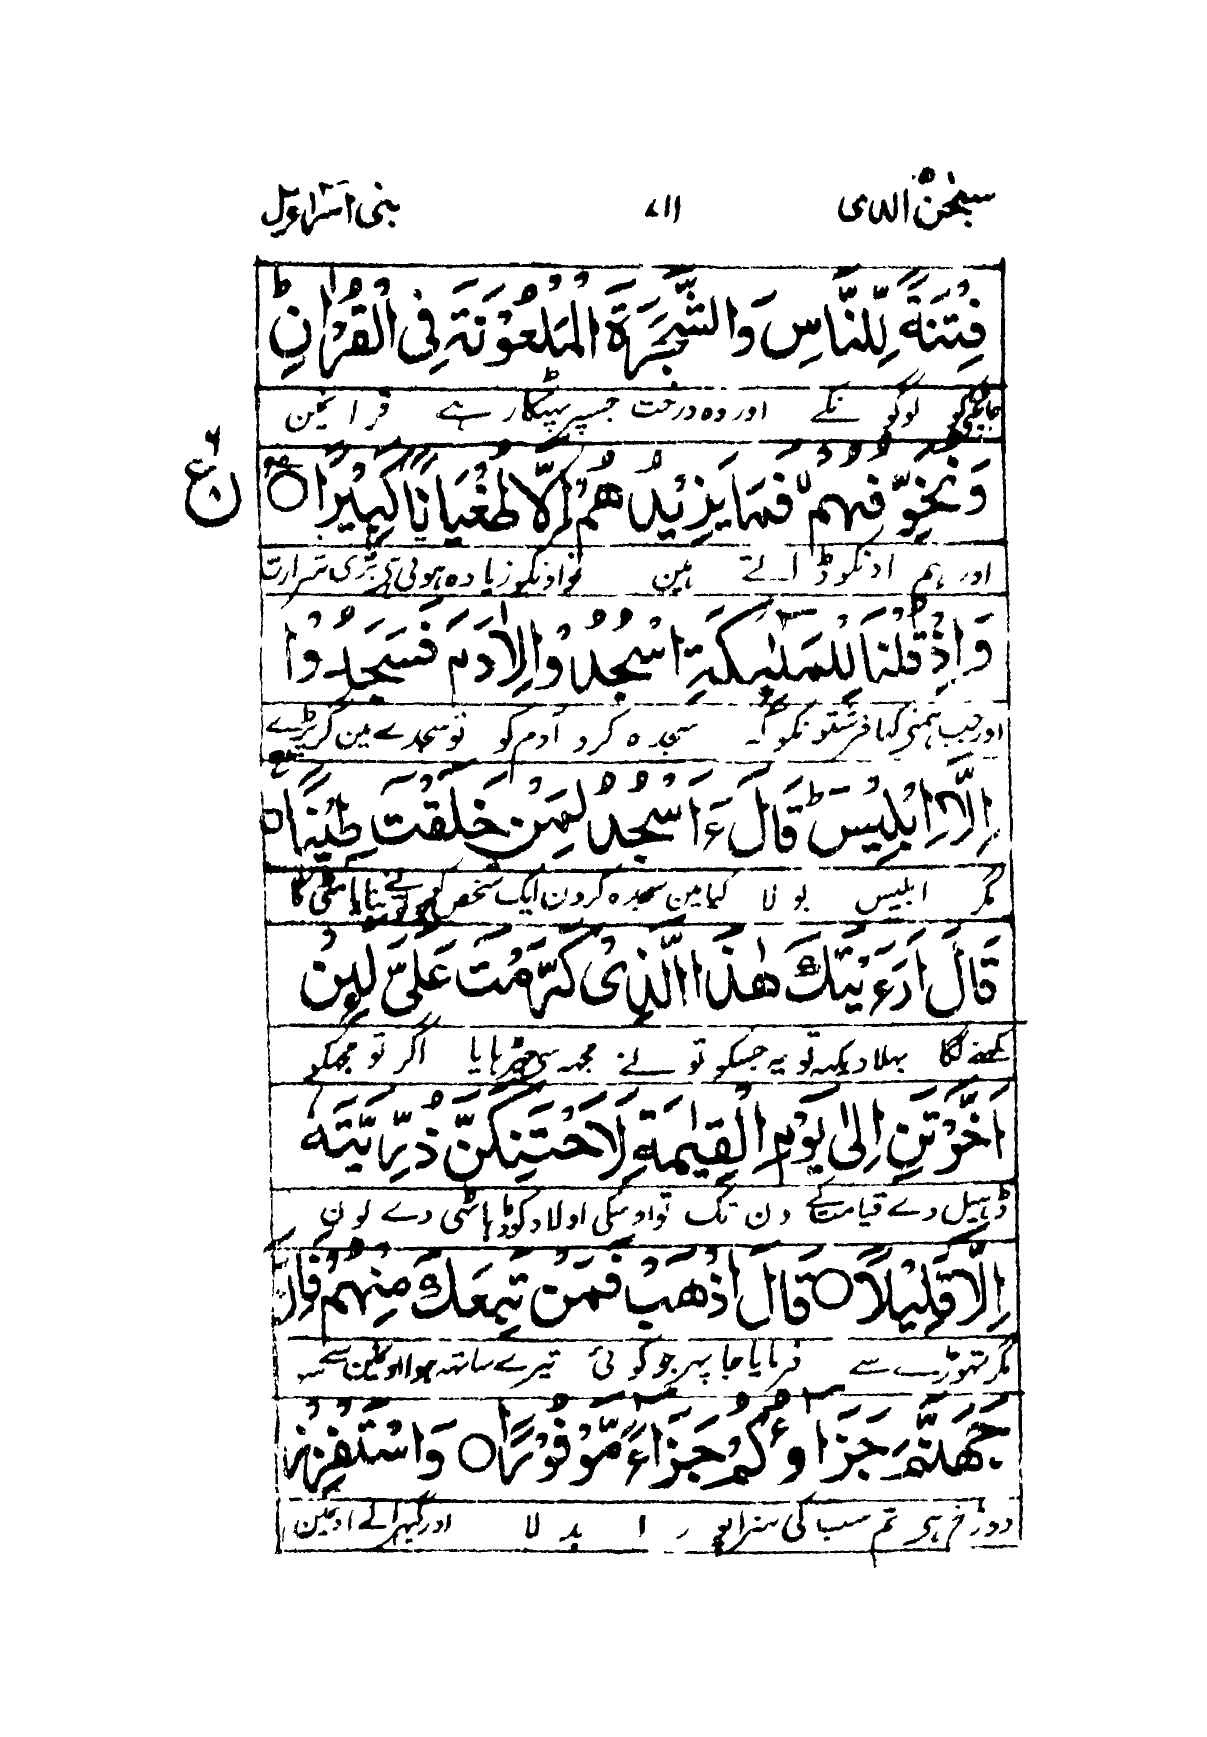 سبحٰن الذی ۷۱۱ بنی اسراءیل
فِتْنَةً لِّلنَّاسِ وَالشَّجَرَةَ الْمَلْعُوْنَةَ فِی الْقُرْاٰنِ ؕ
جانچنے کو لوگونکے اور وہ درخت جسپر پھٹکار ہے قرآنمین
وَنُخَوِّفُهُمْ ۙ فَمَا یَزِیْدُهُمْ اِلَّا طُغْیَانًا كَبِیْرًا ○
ع ٦ ۸
اور ہم اونکو ڈراتے ہین تو اونکو زیادہ ہوتی ہی بڑی شرارت
وَاِذْ قُلْنَا لِلْمَلٰٓئِكَةِ اسْجُدُوْا لِاٰدَمَ فَسَجَدُوْۤا
اور جب ہمنے کہا فرشتونکو کہ سجدہ کرو آدم کو تو سجدے مین گر پڑے
اِلَّاۤ اِبْلِیْسَ ؕ قَالَ ءَاَسْجُدُ لِمَنْ خَلَقْتَ طِیْنًا ○
مگر ابلیس بولا کیا مین سجدہ کرون ایک شخص کو جو تونے بنایا مٹی کا
قَالَ اَرَءَیْتَكَ هٰذَا الَّذِیْ كَرَّمْتَ عَلَیَّ لَئِنْ
کہنے لگا بھلا دیکھ تو یہ جسکو تو نے مجھ سی چڑھایا اگر تو مجھکو
اَخَّرْتَنِ اِلٰی یَوْمِ الْقِیٰمَةِ لَاَحْتَنِكَنَّ ذُرِّیَّتَهٗۤ
ڈھیل دے قیامت کے دن تک تو اوسکی اولاد کو ڈھانٹی دے لون
اِلَّا قَلِیْلًا ○ قَالَ اذْهَبْ فَمَنْ تَبِعَكَ مِنْهُمْ فَاِنَّ
مگر تھوڑے سے فرمایا جا پھر جو کوئی تیرے ساتھ ہوا اونمین سے سو
جَهَنَّمَ جَزَآؤُكُمْ جَزَآءً مَّوْفُوْرًا ○ وَاسْتَفْزِزْ
دوزخ ہی تم سب کی سزا پورا بدلا اور گھبرالے اونمین